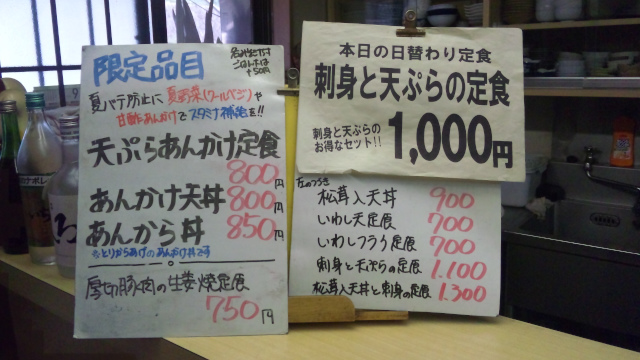 限定品目
夏バテ防止に夏野菜(クールベジ)や
甘酢あんかけでスタミナ補給を!!
天ぷらあんかけ定食
800円
あんかけ天丼 800円
あんから丼 850円
※とりからあげのあんかけ丼です
厚切豚肉の生姜焼定食
750円
本日の日替わり定食
刺身と天ぷらの定食
刺身と天ぷらの
お得なセット!!
1,000円
左のつづき
松茸入天丼 900
いわし天定食 700
いわしフライ定食 700
刺身と天ぷらの定食 1.100
松茸入天丼と刺身の定食 1.300